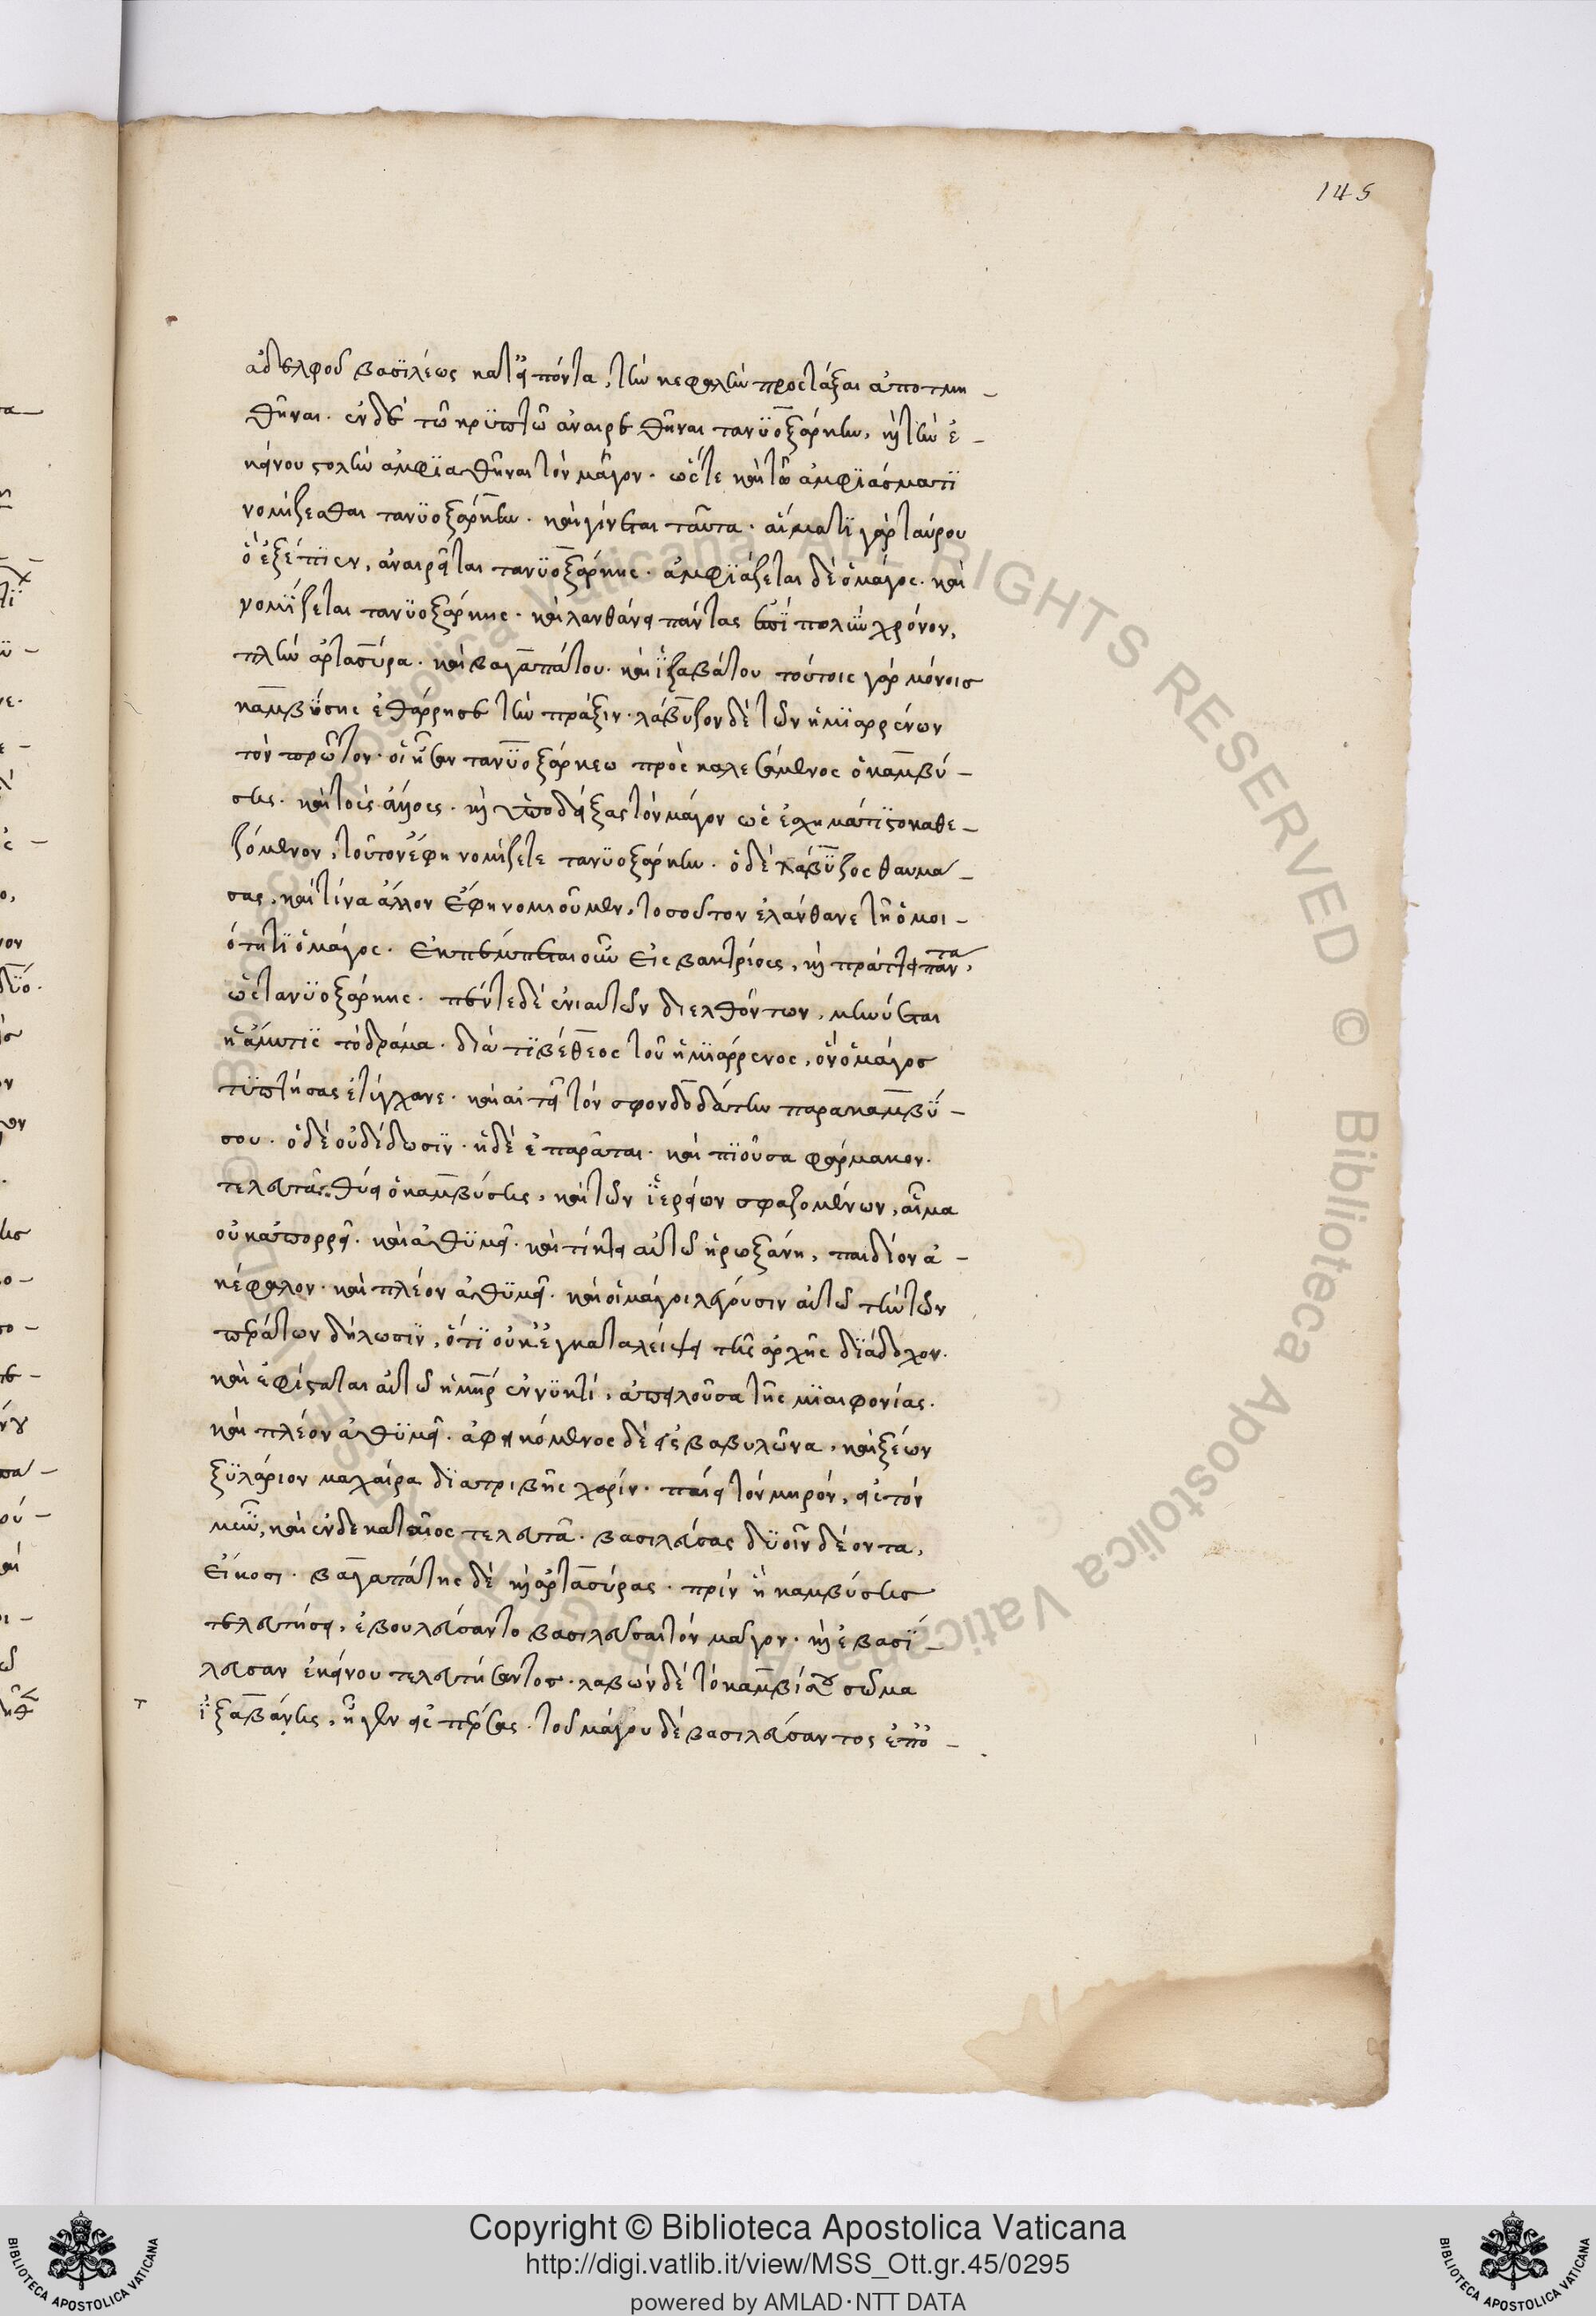 145
ἀδελφοῦ βασϊλέως κατειπόντα, τὴν κεφαλὴν προστάξαι ἀποτμη-
θῆναι. ἐν δὲ τῶ κρϋπτῶ ἀναιρεθῆναι τανϋοξάρκην, καὶ τὴν ἐ-
κείνου στολὴν ἀμφϊασθῆναι τὸν μάγον. ὥστε καὶ τῶ ἀμφϊάσματϊ
νομίζεσθαι τανϋοξάρκην. καὶ γίνεται ταῦτα. αἵματϊ γὰρ ταύρου
ὃ ἐξέπϊεν, ἀναιρεῖται τανϋοξάρκης. ἀμφϊάζεται δὲ ὁ μάγος. καὶ
νομϊζεται τανϋοξάρκης. καὶ λανθάνει πάντας ἐπῒ πολῢν χρόνον,
πλὴν ἀρτασύρα. καὶ βαγαπάτου. καὶ ϊξαβάτου τούτοις γὰρ μόνοις
καμβύσης ἐθάρρησε τὴν πρᾶξιν. λάβυζον δὲ τῶν ἡμϊαρρένων
τὸν πρῶτον. οἳ ἦσαν τανϋοξάρκεω προσκαλεσάμενος ὁ καμβύ-
σης. καὶ τοὺς ἄλλους. καὶ ὑποδείξας τὸν μάγον ὡς ἐσχημάτϊστο καθε-
ζόμενον, τοῦτον ἔφη νομίζετε τανϋοξάρκην. ὁ δὲ λάβϋζος θαυμά-
σας, καὶ τίνα ἄλλον ἔφη νομιοῦμεν, τοσοῦτον ἐλάνθανε τῆ ὁμοι-
ότητϊ ὁ μάγος. ἐκπέμπεται οὖν εἰς βακτρίους, καὶ πράττει πάντα,
ὡς τανϋοξάρκης. πέντε δὲ ἐνιαυτῶν διελθόντων, μηνύεται
ἡ ἄμυτϊς τὸ δράμα. διὰ τϊβέθεος τοῦ ἡμϊάρρενος, ὃν ὁ μάγος
τϋπτήσας ἐτύγχανε. καὶ αἰτεῖ τὸν σφονδοδάτην παρὰ καμβΰ-
σου. ὁ δὲ οὐ δίδωσϊν. ἡ δὲ ἐπαρᾶται. καὶ πϊοῦσα φάρμακον.
τελευτᾶ. θύει ὁ καμβύσης, καὶ τῶν ϊερείων σφαζομένων, αἷμα
οὐκ ἀπορρεῖ. καὶ ἀθϋμεῖ. καὶ τίκτει αὐτῶ ἡ ρωξάνη, παιδίον ἀ-
κέφαλον. καὶ πλέον ἀθϋμεῖ. καὶ οἱ μάγοι λέγουσιν αὐτῶ τὴν τῶν
τεράτων δήλωσϊν, ὅτϊ οὐκ ἐγκαταλείψει τῆς ἀρχῆς δϊάδοχον.
καὶ ἐφίσταται αὐτῶ ἡ μήτηρ ἐν νϋκτὶ, ἀπειλοῦσα τῆς μϊαιφονίας.
καὶ πλέον ἀθϋμεῖ. ἀφικόμενος δὲ εἰς βαβυλῶνα, καὶ ξέων
ξϋλάριον μαχαίρα δϊατριβῆς χάριν. παίει τὸν μηρόν, εἰς τὸν
μῦν, καὶ ἑνδεκαταῖος τελευτᾶ. βασιλεύσας δϋοῖν δέοντα,
εἴκοσι. βαγαπάτης δὲ καὶ ἀρτασύρας. πρὶν ἢ καμβύσης
τελευτήσει, ἐβουλεύσαντο βασιλεῦσαι τὸν μάγον. καὶ ἐβασϊ-
λευσαν ἐκείνου τελευτήσαντος. λαβὼν δὲ τὸ καμβύσου σῶμα
ϊξαβάτης, ἦγεν εἰς πέρσας. τοῦ μάγου δὲ βασιλεύσαντος ἐπὸ-